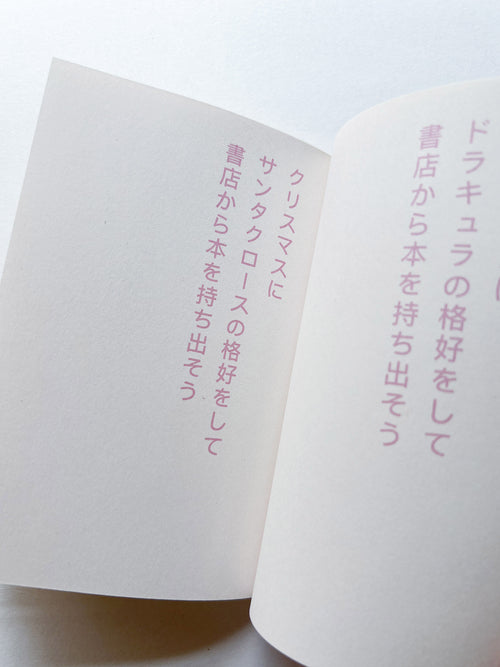 ドラキュラの格好をして
書店から本を持ち出そう
クリスマスに
サンタクロースの格好をして
書店から本を持ち出そう